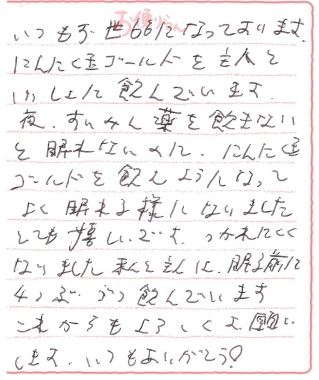 お便りらん
いつもお世話になっております。
にんにく玉ゴールドを主人と
いっしょに飲んでいます。
夜、すいみん薬を飲まない
と眠れないのに、にんにく玉
ゴールドを飲んようになって
よく眠れる様になりました
とても嬉しいです。つかれにくく
なりました 私と主人は、眠る前に
4つぶづつ飲んでいます
これからもよろしくお願い
します。いつもありがとう!